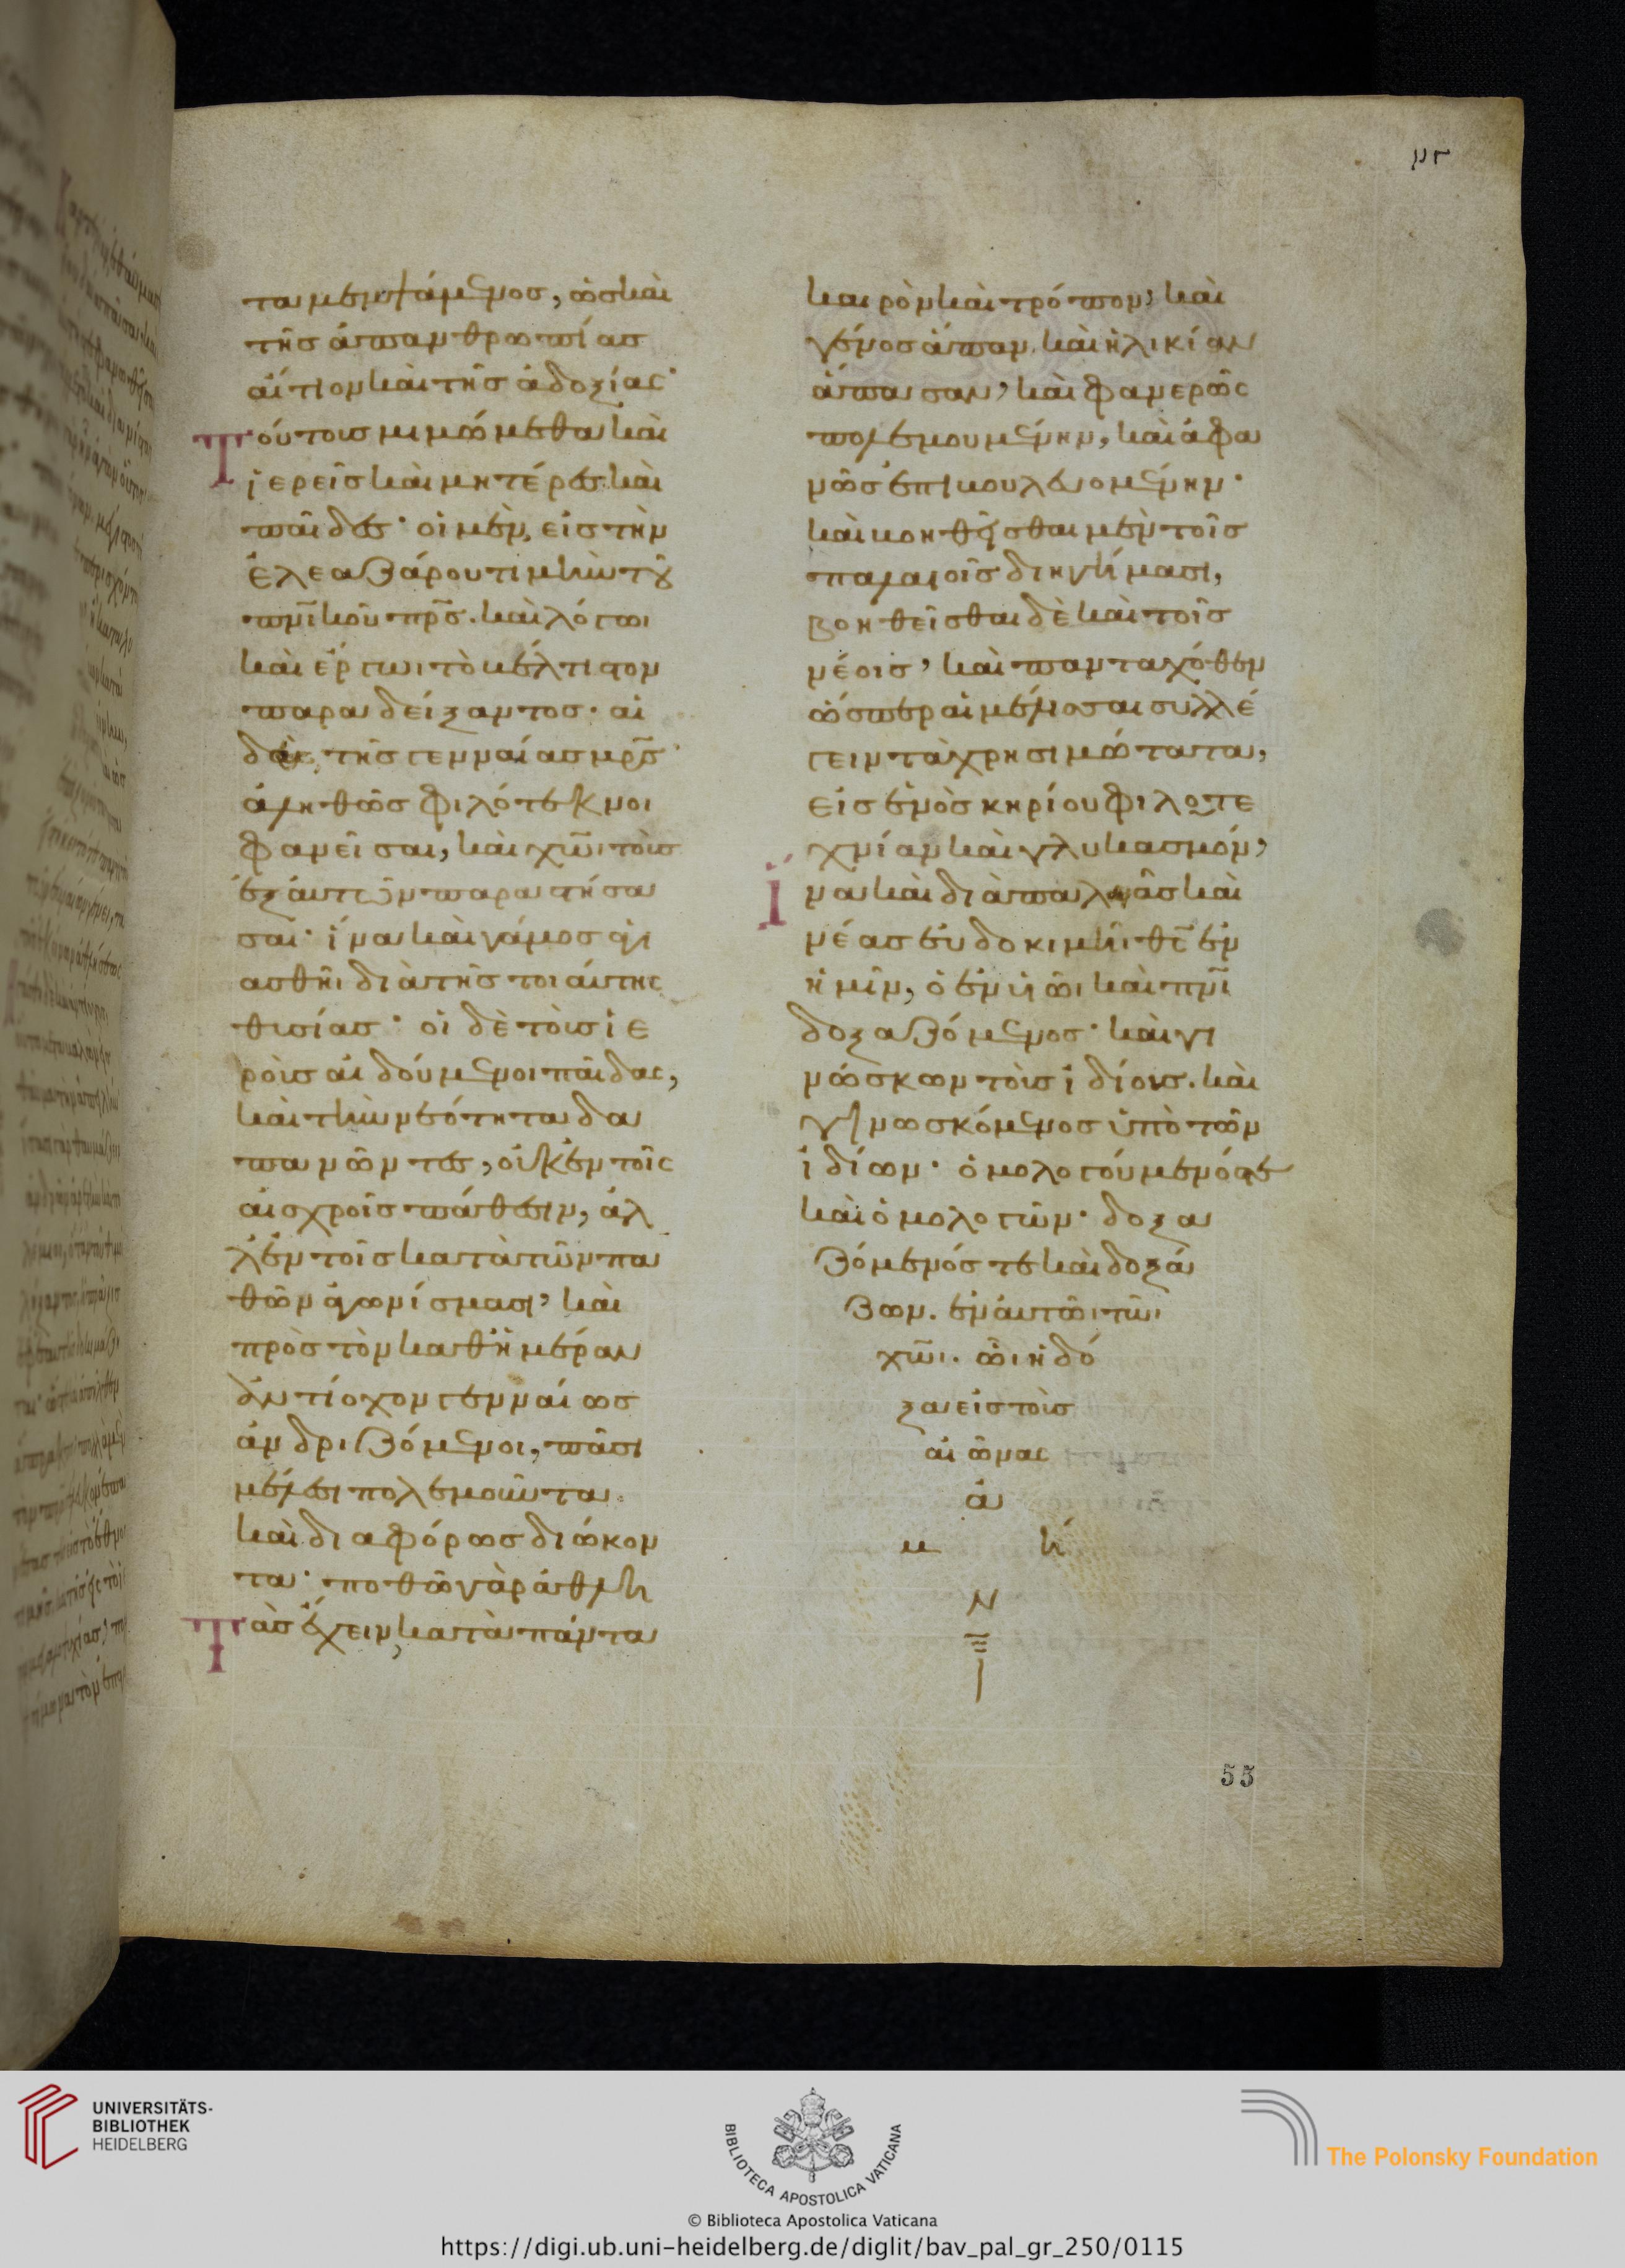 τα μεμψάμενος, ὡς καὶ
τῆς ἀπανθρωπίας
αἴτιον καὶ τῆς ἀδοξίας·
Τούτους μιμώμεθα καὶ
ἱερεῖς καὶ μητέρες καὶ
παῖδες· οἱ μὲν, εἰς τὴν
ἐλεαζάρου τιμὴν τοῦ
πνικοῦ πρς. καὶ λόγωι
καὶ ἔργωι τὸ βέλτιστον
παραδείξαντος· αἱ
δὲ, τῆς γενναίας μρς
ἀληθῶς φιλότεκνοι
φανεῖσαι, καὶ χωι τοὺς
ἐξ αὐτῶν παραστήσα
σαι· ἵνα καὶ γάμος ἁγι
ασθῆι διὰ τῆς τοιαύτης
θυσίας· οἱ δὲ τοὺς ἱε
ροὺς αἰδούμενοι παῖδας,
καὶ τὴν νεότητα δα
πανῶντες, οὐκ ἐν τοῖς
αἰσχροῖς πάθεσιν, ἀλ
λ' ἐν τοῖς κατὰ τῶν πα
θῶν ἀγωνίσμασι, καὶ
πρὸς τὸν καθ ἡμέραν
ἀντίοχον γενναίως
ἀνδριζόμενοι, πᾶσι
μέλεσι πολεμοῦντα
καὶ διαφόρως διώκον
τα· ποθῶ γὰρ ἀθλη
Τὰς ἔχειν κατὰ πάντα
καιρὸν καὶ τρόπον, καὶ
γένος ἅπαν. καὶ ἡλικίαν
ἅπασαν, καὶ φανερῶς
πολεμουμένην, καὶ ἀφα
νῶς ἐπιβουλευομένην·
καὶ βοηθεῖσθαι μὲν τοῖς
παλαιοῖς διηγήμασι,
βοηθεῖσθαι δὲ καὶ τοῖς
νέοις, καὶ πανταχόθεν
ὥσπερ αἱ μέλισσαι συλλέ
γειν τὰ χρησιμώτατα,
εἰς ἑνὸς κηρίου φιλοτε
χνίαν καὶ γλυκασμόν,
Ἵνα καὶ διὰ παλαιᾶς καὶ
νέας εὐδοκιμῆι θς ἐν
ἡμῖν, ὁ ἐν υωι καὶ πνι
δοξαζόμενος· καὶ γι
νώσκων τοὺς ἰδίους. καὶ
γινωσκόμενος ὑπὸ τῶν
ἰδίων· ὁμολογούμενός τε
καὶ ὁμολογῶν· δοξα
ζόμενός τε καὶ δοξά
ζων. ἐν αὐτῶι τῶι
χωι. ὧι ἡ δό
ξα εἰς τοὺς
αἰῶνας
ἀ
μ ή
ν
55
UNIVERSITÄTS-
BIBLIOTHEK
HEIDELBERG
BIBLIOTECA APOSTOLICA VATICANA
The Polonsky Foundation
© Biblioteca Apostolica Vaticana
https://digi.ub.uni-heidelberg.de/diglit/bav_pal_gr_250/0115